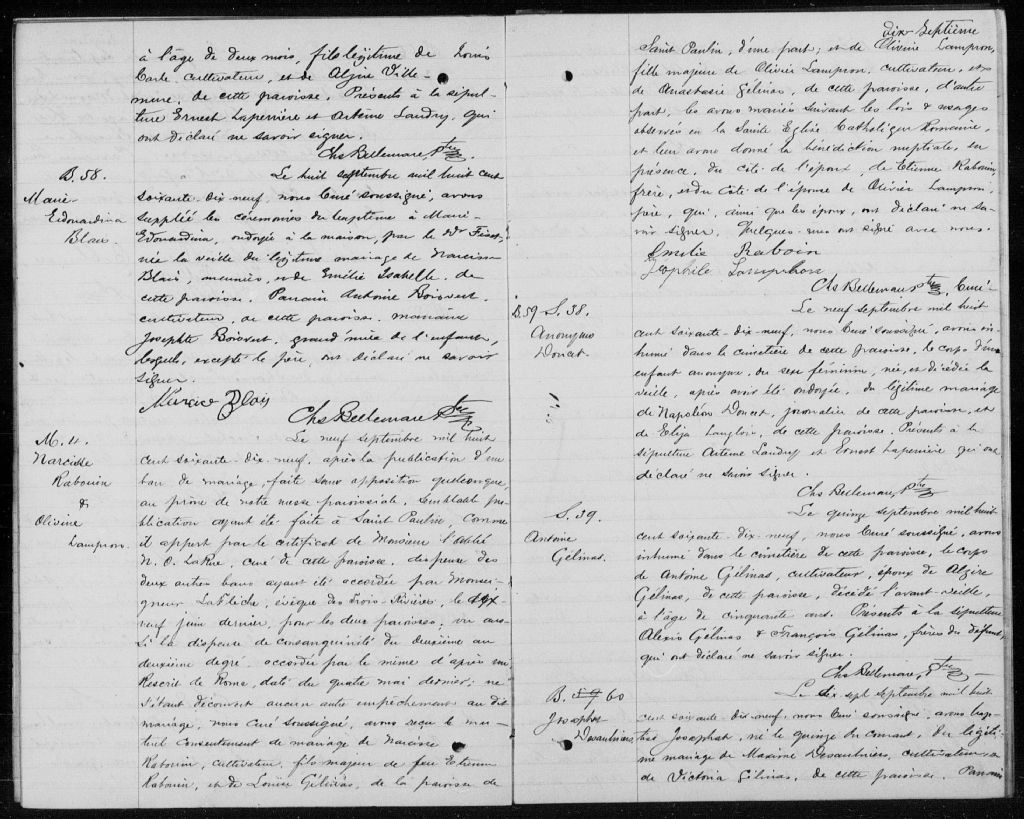 à l'âge de deux mois, fils légitime de Louis
cultivateur, et de Alzire Ville-
mure, de cette paroisse. Présents à la sépul-
ture Ernest Laperrière et Artème Landry, qui
ont déclaré ne savoir signer.
Chs Bellemare, Ptre
B. 58.
Marie-
Edouardina
Blais.
Le huit septembre mil huit cent
soixante-dix-neuf, nous Curé soussigné, avons
suppléé les cérémonies du baptême à Marie-
Edouardina, ondoyée à la maison, par le Dr
née la veille du légitime mariage de Narcisse
Blais, meunier, et de Emélie Isabelle, de
cette paroisse. Parrain Antoine Boisvert,
cultivateur, de cette paroisse, marraine
Josephte Boisvert, grand'mère de l'enfant,
lesquels, excepté le père, ont déclaré ne savoir
signer.
Blais
Chs Bellemare Ptre
M. 4.
Narcisse
Rabouin
&
Olivine
Lampron.
Le neuf septembre mil huit
cent soixante-dix-neuf, après la publication d'un
ban de mariage, faite sans opposition quelconque
au prône de notre messe paroissiale, semblable pu-
blication ayant été faite à Saint Paulin, comme
il appert par le certificat de Monsieur l'abbé
N. O. LaRue, curé de cette paroisse, dispense des
deux autres bans ayant été accordée par Monsei-
gneur Laflèche, évêque des Trois-Rivières, le dix-
neuf juin dernier, pour les deux paroisses; vu aus-
si la dispense de consanguinité du deuxième au
deuxième degré, accordée par le même d'après un
Rescrit de Rome, daté du quatre mai dernier; ne
s'étant découvert aucun autre empêchement au dit
mariage, nous curé soussigné, avons reçu le mu-
tuel consentement de mariage de Narcisse
Rabouin, cultivateur, fils majeur de feu Etienne
Rabouin, et de Louise Gélinas, de la paroisse de
dix-septième
Saint Paulin, d'une part; et de Olivine Lampron,
fille majeure de Olivier Lampron, cultivateur, et
de Anastasie Gélinas, de cette paroisse, d'autre
part, les avons mariés suivant les lois & usages
observés en la Sainte Eglise Catholique Romaine,
et leur avons donné la bénédiction nuptiale, en
présence, du côté de l'époux, de Etienne Rabouin,
frère, et du côté de l'épouse de Olivier Lampron,
père, qui, ainsi que les époux, ont déclaré ne sa-
voir signer. Quelques-uns ont signé avec nous.
Emilie Raboin
Lamphron
Chs Bellemare Ptre Curé-
B.59-S.38.
Anonyme
Doucet.
Le neuf septembre mil huit
cent soixante-dix-neuf, nous Curé soussigné, avons in-
humé dans le cimetière de cette paroisse, le corps d'un
enfant anonyme, du sexe féminin, née et décédée la
veille, après avoir été ondoyée, du légitime mariage
de Napoléon Doucet, journalier de cette paroisse, et
de Eliza Langlois, de cette paroisse. Présents à la
sépulture Artème Landry et Ernest Laperrière qui ont
déclaré ne savoir signer.
Chs Bellemare, Ptre
S. 39.
Antoine
Gélinas.
Le quinze septembre mil huit
cent soixante-dix-neuf, nous Curé soussigné, avons
inhumé dans le cimetière de cette paroisse, le corps
de Antoine Gélinas, cultivateur, époux de Alzire
Gélinas, de cette paroisse, décédé l'avant-veille,
à l'âge de cinquante ans. Présents à la sépulture
Alexis Gélinas & François Gélinas, frères du défunt,
qui ont déclaré ne savoir signer.
Chs Bellemare, Ptre
B. 59 60
Josaphat
Desaulniers
Le dix sept septembre mil huit
cent soixante-dix-neuf, nous Curé soussigné, avons bap-
tisé Josaphat, né le quinze du courant, du légiti-
me mariage de Maxime Desaulniers, cultivateur, et
de Victoria Gélinas, de cette paroisse. Parrain